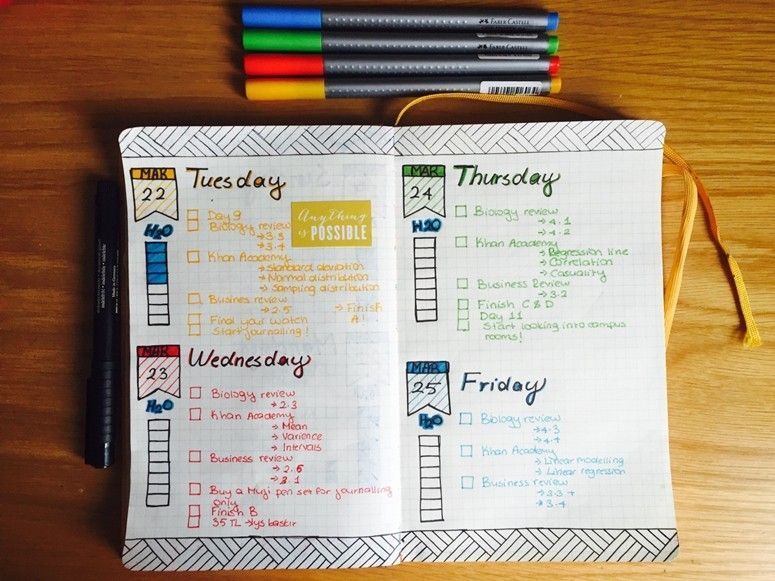 FABER-CASTELL
FABER-CASTELL
FABER-CASTELL
FABER-CASTELL
MAR
22
Tuesday
H2O
Day 9
Biology review
→3.3
→3.4
Anything
is POSSIBLE
Khan Academy
→Standard deviation
→Normal distribution
→Sampling distribution
Business review
→2.5
→Finish
A!
Find your watch
Start journalling!
MAR
23
Wednesday
H2O
Biology review
→2.3
Khan Academy
→Mean
→Varience
→Intervals
Business review
→2.6
→3.1
Buy a Muji pen set for journalling
only
Finish B
35 TL →lys bastır
MAR
24
Thursday
H2O
Biology review
→4.1
→4.2
Khan Academy
→Regression line
→Correlation
→Casuality
Business Review
→3.2
Finish C & D
Day 11
Start looking into campus
rooms!
MAR
25
Friday
H2O
Biology review
→4.3
→4.4
Khan Academy
→Linear modelling
→Linear regression
Business review
→3.3 +
→3.4